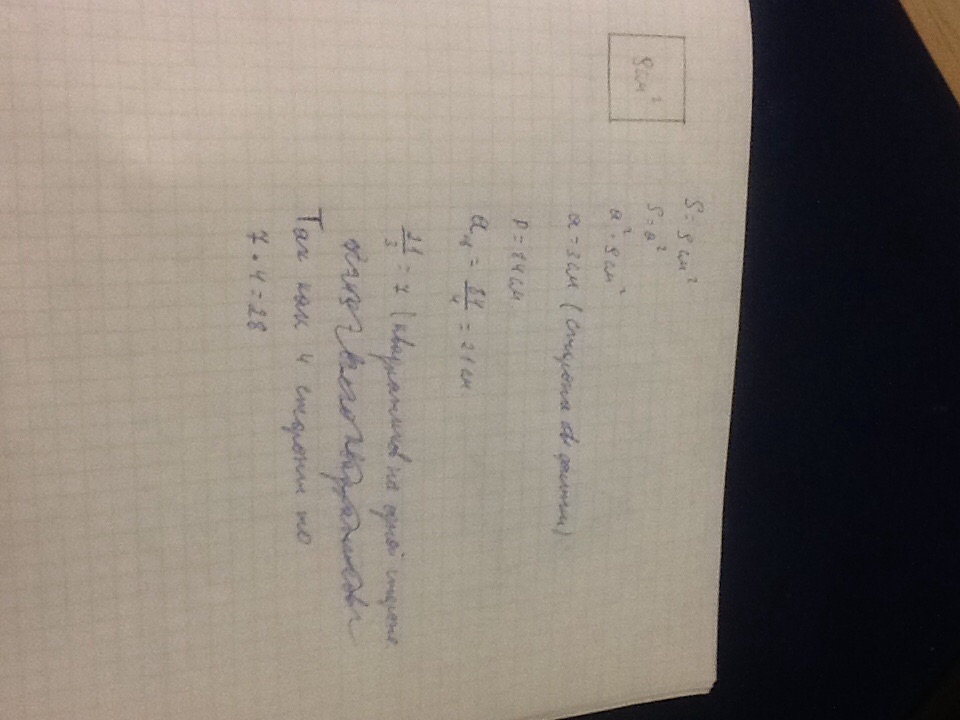 9 см²
S = 9 см²
S = a²
a² = 9 см²
a = 3 см (сторона
P = 84 см
a = 84/4 = 21 см
21/3 = 7 (квадратиков на одной стороне
Так как 4 стороны то
7 • 4 = 28